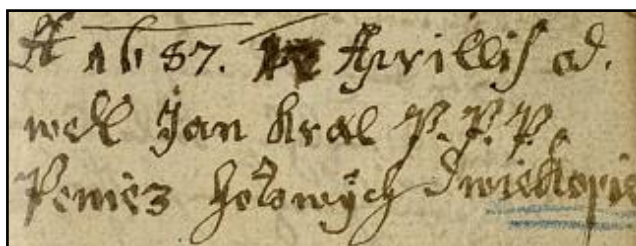 A 1687. Aprillis od.
wedl Jan Kral P. P. P.
Peniez hotowych dwie kopie